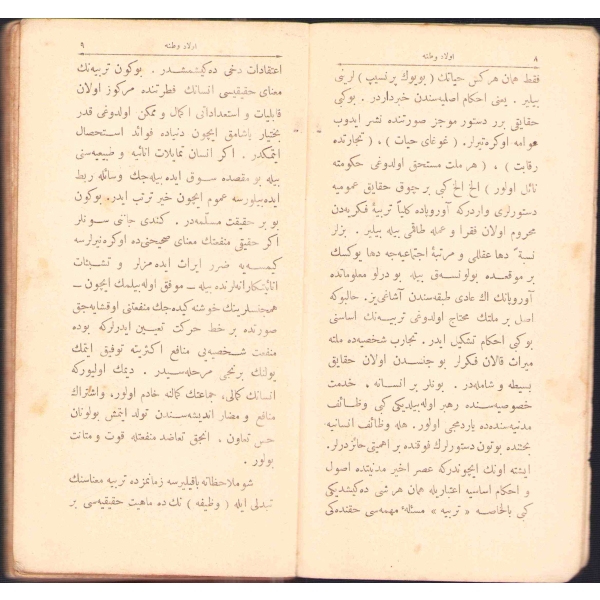 ٨
اولاد وطنه
فقط همان هركس حياتك ( بويوك پرنسيب ) لرينى
بيلير . يعنى احكام اصليه‌سندن خبرداردر . بوكبى
حقايقى برر دستور موجز صورتنده نشر ايدوب
عوامه اوكره‌تيرلر . ( غوغاى حيات ) ، ( تجارتده
رقابت ) ، ( هر ملت مستحق اولدوغى حكومته
نائل اولور ) الخ الخ كبى بر چوق حقايق عموميه
دستورلرى واردركه آوروپاده كلياً تربيهٔ فكريه‌دن
محروم اولان فقرا و عمله طاقمى بيله بيلير . بزلر
نسبةً دها عقللى و مرتبهٔ اجتماعيه‌جه دها يوكسك
بر موقعده بولونسه‌ق بيله بو درلو معلوماتده
آوروپانك اك عادى طبقه‌سندن آشاغى‌يز . حالبوكه
اصل بر ملتك محتاج اولدوغى تربيه‌نك اساسنى
بوكبى احكام تشكيل ايدر . تجارب شخصيه‌ده ملته
ميراث قالان فكرلر بو جنسدن اولان حقايق
بسيطه و شامله‌در . بونلر بر انسانه . خدمت
خصوصيه‌سنده رهبر اوله‌بيلديكى كبى وظائف
مدنيه‌سنده‌ده ياردمجى اولور . هله وظائف انسانيه
بحثنده بوتون دستورلرك فوقنده بر اهميتى حائزدرلر .
ايشته اونك ايچوندركه عصر اخير مدنيتنده اصول
و احكام اساسيه اعتباريله همان هر شى ده‌كيشديكى
كبى بالخاصه « تربيه » مسئلهٔ مهمه‌سى حقنده‌كى
٩
اولاد وطنه
اعتقادات دخى ده‌كيشمشدر . بوكون تربيه‌نك
معناى حقيقيسى انسانك فطرتنده مركوز اولان
قابليات و استعداداتى اكمال و ممكن اولدوغى قدر
بختيار ياشامق ايچون دنياده فوائد استحصال
ايتمكدر . اكر انسان تمايلات انانيه و طبيعيه‌سنى
بيله بو مقصده سوق ايده‌بيله‌جك وسائله ربط
ايده‌بيلورسه عموم ايچون خير ترتب ايدر . بوكون
بو بر حقيقت مسلّمه‌در . كندى جاننى سونلر
اكر حقيقى منفعتك معناى صحيحنى‌ده اوكره‌نيرلرسه
كيمسه‌يه ضرر ايراث ايده‌مزلر و تشبثات
انانيتكارانه‌لرنده بيله — موفق اوله‌بيلمك ايچون —
همجنسلرينك خوشنه كيده‌جك منفعتنى اوقشايه‌جق
صورتده بر خط حركت تعيين ايدرلركه بوده
منفعت شخصيه‌يى منافع اكثريته توفيق ايتمك
يولنك برنجى مرحله‌سيدر . ديمك اوليوركه
انسانك كمالى ، جماعتك كمالنه خادم اولور . واشتراك
منافع و مضار انديشه‌سندن تولد ايتمش بولونان
حس تعاون ، انجق تعاضد منفعتله قوت و متانت
بولور .
شو ملاحظاته باقيليرسه زمانمزده تربيه معناسنك
تبدلى ايله ( وظيفه ) نك ده ماهيت حقيقيه‌سى بر